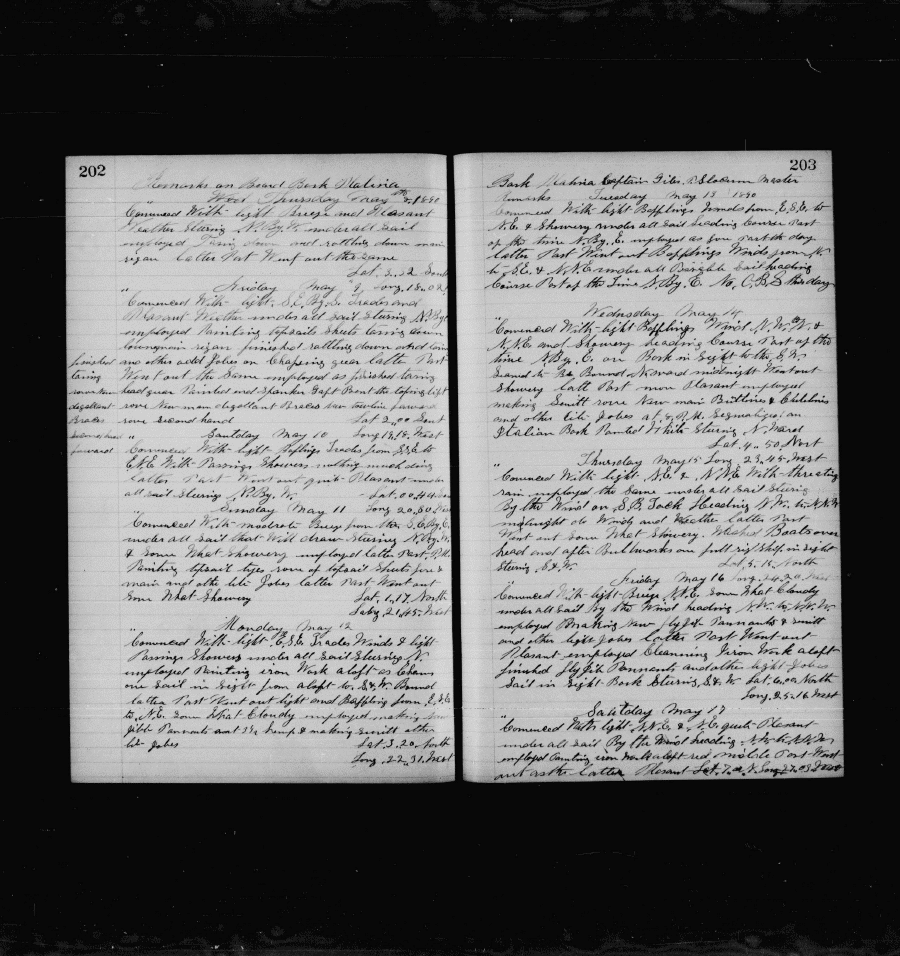 202
Remarks on Board Bark Platina
Thursday May 8th 1890
Comenced With light Breeze and Pleasant
Weather Stering N. By. W. under all Sail
employed Taring down and rattling down main
rigan latter Part Went out the same
Lat, 3,,32 South
" Friday May 9 Long, 18,,02
Comenced With light, S.E. By. S. Trades and
Pleasant Weather under all Sail Stering N. By
employed Painting topsails Sheets taring down
rigan finished rattling down and taring
and other odd Jobes on Chaping gear latte Part
Went out the Same employed as finished taring
head gear Painted and Spanker Gaft Bent the toping lift
rove New main Braces forward
rove second hand Lat 2,,00 South
finished
taring
Braces
forward
" Saturday May 10 Long 19,,18, West
Comenced With light Trades from S.E. to
E.N.E. With Passing Showers nothing much doing
latter Part Went out quite Pleasant under
all Sail Stering N. By. W. Lat, 00,,44
" Sunday May 11 Long 20,,50
Comenced With modrate Breeze from the S.E. By. E.
under all Sail that Will draw Stering N. By. W.
& Some What Showery employed latter Part, P.M.
Painting topsail tyes rove of topsail Sheets fore &
main and othe litle Jobes latter Part Went out
Some What Showery Lat, 1,,17, North
Long, 21,,45, West
" Monday May 12
Comenced With light E.S.E. Trades Winds & light
Passing Showers under all Sail Stering N.
employed Painting iron Work aloft as Chains
one Sail in Sight from aloft to, S. & W. Bound
latter Part Went out light and Baffling from, E.S.E
to, N.E. Some What Cloudy employed making
Jibb Pannants and making Smitt othe
litle Jobes Lat, 3,,20, North
Long, 22,,31, West
203
Bark Platina Captain Giles, P. Slocum Master
Remarks Tuesday May 13 1890
Comenced With light Bafflings Winds from, E.S.E. to
N.E. & Showery under all Sail heading Course Part
of the time N. By. E. employed as fore Part the day
latter Part Went out Bafflings Winds from N.
to, S.E. & N.N.E. under all Sail heading
Course Part of the Time N. By. E. No, O.B.S this day
" Wednesday May 14
Comenced With light Bafflings Wind N.W. N. &
N.N.E. and Showery heading Course Part of the
time N. By. E. one Bark in Sight to the S.W.
Seamed to Be Bound, N. ward midnight Went out
Showery latt Part more Pleasant employed
making Smitt rove New main Buntlines & Clulines
and other litle Jobes at, 8, P.M.
Italian Bark Painted White Stering N. Ward
Lat, 4,,50, North
" Thursday May 15 Long, 23,,45, West
Comenced With light N.E. & N.N.E. With threating
rain employed the Same under all Sail Stering
By the Wind on S.B. Tack Heading N.W. to, N.N.W.
midnight do Winds and Weather latter Part
Went out Some What Showery. Washed Boats over
head and after Bullworks one full rig Ship. in Sight
Stering S. & W. Lat, 5,,15, North
" Friday May 16 Long, 24,,20 West
Comenced With light Breeze N.N.E. Some What Cloudy
under all Sail By the Wind heading N.W. to N.N.W.
employed Making New flyJib Pannants & Smitt
and other light Jobes latter Part Went out
Pleasant employed Cleanning Iron Work aloft
finished flyJib Pennants and other light Jobes
Sail in Sight Bark Stering, S. & W Lat, 6,,00 North
Long, 25,,16 West
" Saturday May 17
Comenced With light N.N.E. & N.E. quite Pleasant
under all Sail By the Wind heading N.W. to, N.N.W.
employed Painting iron Work aloft red midle Part Went
out as the latter Pleasant Lat, 7 N, Long, 27,,03 West